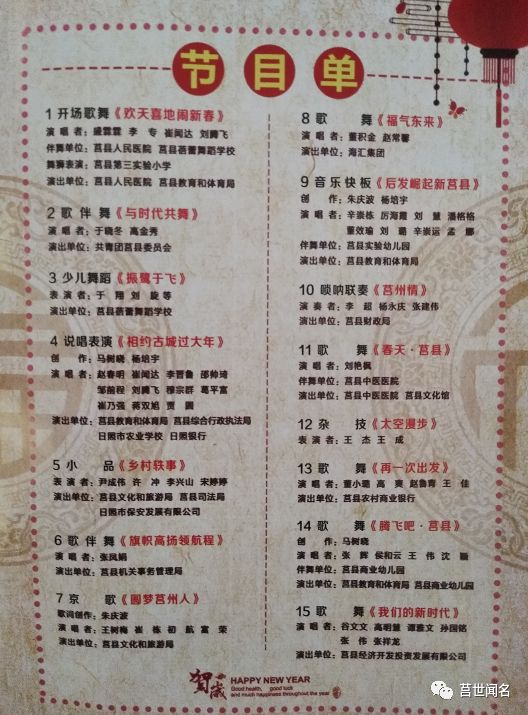 节目单
1 开场歌舞《欢天喜地闹新春》
演 唱 者：盛霏霏 李 专 崔闻达 刘腾飞
伴舞单位：莒县人民医院 莒县蓓蕾舞蹈学校
舞狮表演：莒县第三实验小学
演出单位：莒县人民医院 莒县教育和体育局
2 歌 伴 舞《与时代共舞》
演 唱 者：于晓冬 高金秀
演出单位：共青团莒县委员会
3 少儿舞蹈《振鹭于飞》
表 演 者：于 翔 刘 旋 等
演出单位：莒县蓓蕾舞蹈学校
4 说唱表演《相约古城过大年》
创 作：马树晓 杨培宇
演 唱 者：赵春明 崔闻达 李晋鲁 邵帅琦
邹前程 刘腾飞 穆宗群 葛平富
崔乃强 蒋双旭 贾 圆
演出单位：莒县教育和体育局 莒县综合行政执法局
日照市农业学校 日照银行
5 小 品《乡村轶事》
表 演 者：尹成伟 许 冲 李兴山 宋婷婷
演出单位：莒县文化和旅游局 莒县司法局
日照市保安发展有限公司
6 歌 伴 舞《旗帜高扬领航程》
演 唱 者：张凤娟
演出单位：莒县机关事务管理局
7 京 歌《圆梦莒州人》
歌词创作：朱庆波
演 唱 者：王树梅 崔 栋 初 航 富 荣
演出单位：莒县文化和旅游局
8 歌 舞《福气东来》
演 唱 者：董积金 赵常馨
演出单位：海汇集团
9 音乐快板《后发崛起新莒县》
创 作：朱庆波 杨培宇
演 唱 者：辛崇栋 厉海霞 刘 慧 潘格格
董效瑜 刘 璐 辛崇运 孟 娜
伴舞单位：莒县实验幼儿园
演出单位：莒县教育和体育局
10 唢呐联奏《莒州情》
演 奏 者：李 超 杨永庆 张建伟
演出单位：莒县财政局
11 歌 舞《春天·莒县》
演 唱 者：刘艳枫
伴舞单位：莒县中医医院
演出单位：莒县中医医院 莒县文化馆
12 杂 技《太空漫步》
表 演 者：王 杰 王 成
13 歌 舞《再一次出发》
演 唱 者：董小璐 高 爽 赵鲁育 王 佳
演出单位：莒县农村商业银行
14 歌 舞《腾飞吧·莒县》
创 作：马树晓
演 唱 者：张 辉 侯和云 王 伟 沈
伴舞单位：莒县商业幼儿园
演出单位：莒县教育和体育局 莒县商业幼儿园
15 歌 舞《我们的新时代》
演 唱 者：谷文文 高明慧 谭雅文 孙国铭
张 伟 张祥龙
演出单位：莒县经济开发投资发展有限公司
贺岁
HAPPY NEW YEAR
Good health, good luck
and much happiness throughout the year
莒世闻名